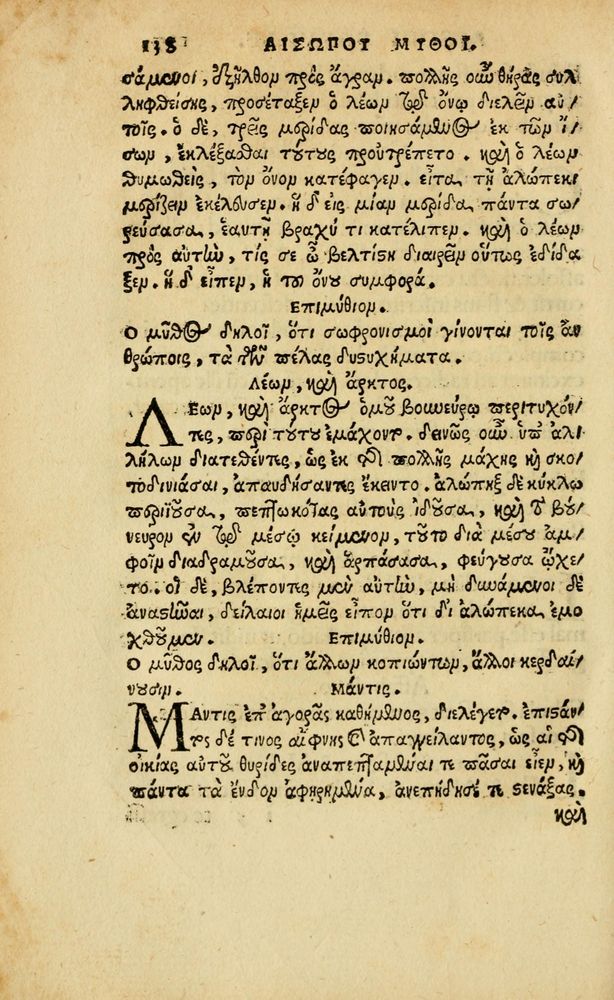 138 ΑΙΣΩΠΟΥ ΜΥΘΟΙ.
σάμενοι, ἐξῆλθον πρὸς ἄγραν. πολλῆς οὖν θήρας συλ
ληφθείσης, προσέταξεν ὁ λέων τῷ ὄνῳ διελεῖν αὐ
τοῖς. ὁ δὲ, τρεῖς μερίδας ποιησάμενος ἐκ τῶν ἴ
σων, ἐκλέξασθαι τούτους προὐτρέπετο. καὶ ὁ λέων
θυμωθεὶς, τὸν ὄνον κατέφαγεν. εἶτα τῇ ἀλώπεκι
μερίζειν ἐκέλευσεν. ἡ δ' εἰς μίαν μερίδα πάντα σω
ρεύσασα, ἑαυτῇ βραχύ τι κατέλιπεν. καὶ ὁ λέων
πρὸς αὐτὴν, τίς σε ὦ βελτίστη διαιρεῖν οὕτως ἐδίδα
ξεν. ἡ δ' εἶπεν, ἡ τοῦ ὄνου συμφορά.
Επιμύθιον.
Ο μῦθος δηλοῖ, ὅτι σωφρονισμοὶ γίνονται τοῖς ἀν
θρώποις, τὰ τῶν πέλας δυστυχήματα.
Λέων, καὶ ἄρκτος.
ΛΕων, καὶ ἄρκτος ὁμοῦ βουνεύρῳ περιτυχόν
τες, περὶ τούτου ἐμάχοντο. δεινῶς οὖν ὑπ' ἀλ
λήλων διατεθέντες, ὡς ἐκ τῆς πολλῆς μάχης καὶ σκο
τοδινιάσαι, ἀπαυδήσαντες ἔκειντο. ἀλώπηξ δὲ κύκλῳ
περιϊοῦσα, πεπτωκότας αὐτοὺς ἰδοῦσα, καὶ τὸ βού
νευρον ἐν τῷ μέσῳ κείμενον, τοῦτο διὰ μέσου ἀμ
φοῖν διαδραμοῦσα, καὶ ἁρπάσασα, φεύγουσα ᾤχε
το. οἱ δὲ, βλέποντες μὲν αὐτὴν, μὴ δυνάμενοι δὲ
ἀναστῆναι, δείλαιοι ἡμεῖς εἶπον ὅτι δι' ἀλώπεκα ἐμο
χθοῦμεν. Επιμύθιον.
Ο μῦθος δηλοῖ, ὅτι ἄλλων κοπιώντων, ἄλλοι κερδαί
νουσιν. Μάντις.
ΜΑντις ἐπ' ἀγορᾶς καθήμενος, διελέγετο. ἐπιστάν
τος δέ τινος αἴφνης καὶ ἀπαγγείλαντος, ὡς αἱ τῆς
οἰκίας αὐτοῦ θυρίδες ἀναπεπταμέναι τε πᾶσαι εἶεν, καὶ
πάντα τὰ ἔνδον ἀφῃρημένα, ἀνεπήδησέ τε στενάξας.
καὶ